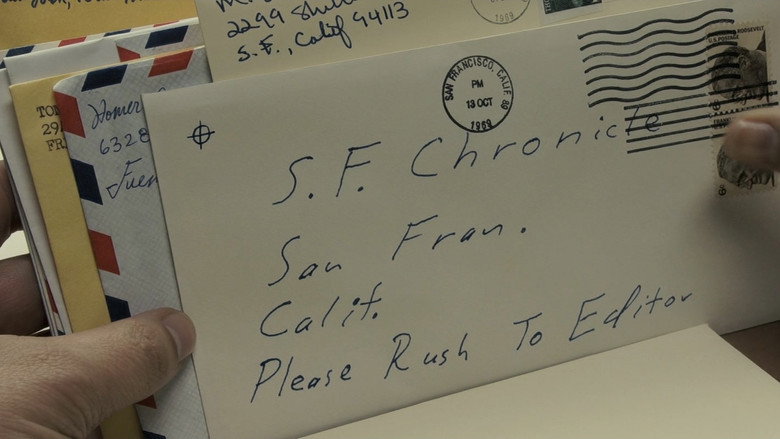 2299
S.F., Calif 94113
1969
TO
29
FR
Homer
6328
SAN FRANCISCO, CALIF.
PM
13 OCT
1969
U.S. POSTAGE
ROOSEVELT
S.F. Chronicle
San Fran.
Calif.
Please Rush To Editor